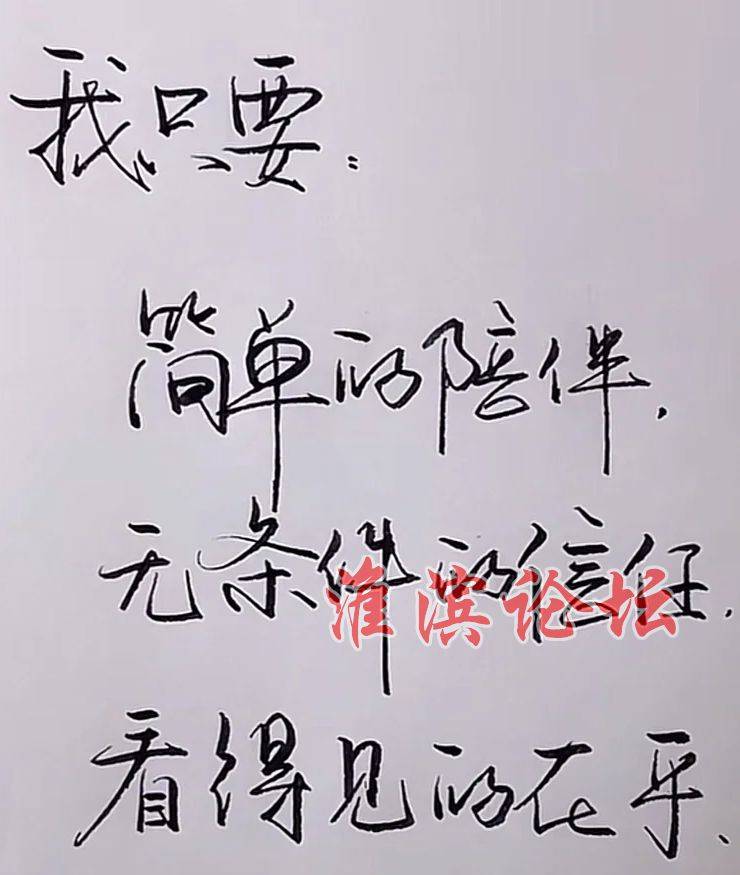 我只要:
简单的陪伴.
无条件的信任.
看得见的在乎、
淮滨论坛